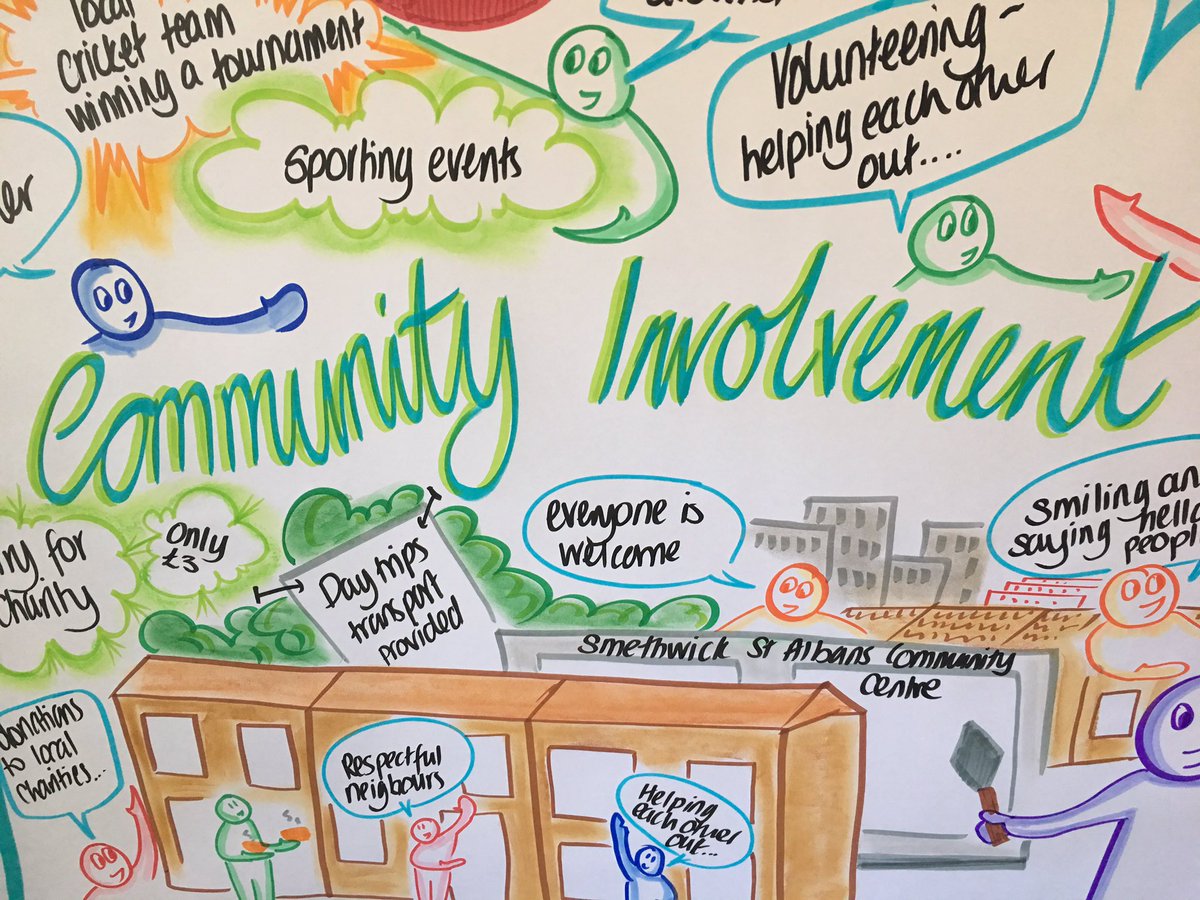 local
cricket team
winning a tournament
sporting events
Volunteering -
helping each other
out....
Community Involvement
for
Charity
Only
£3
Day trips
transport
provided
everyone is
welcome
smiling
saying hello
people
Smethwick St Albans Community
Centre
donations
to local
charities...
Respectful
neighbours
Helping
each other
out...